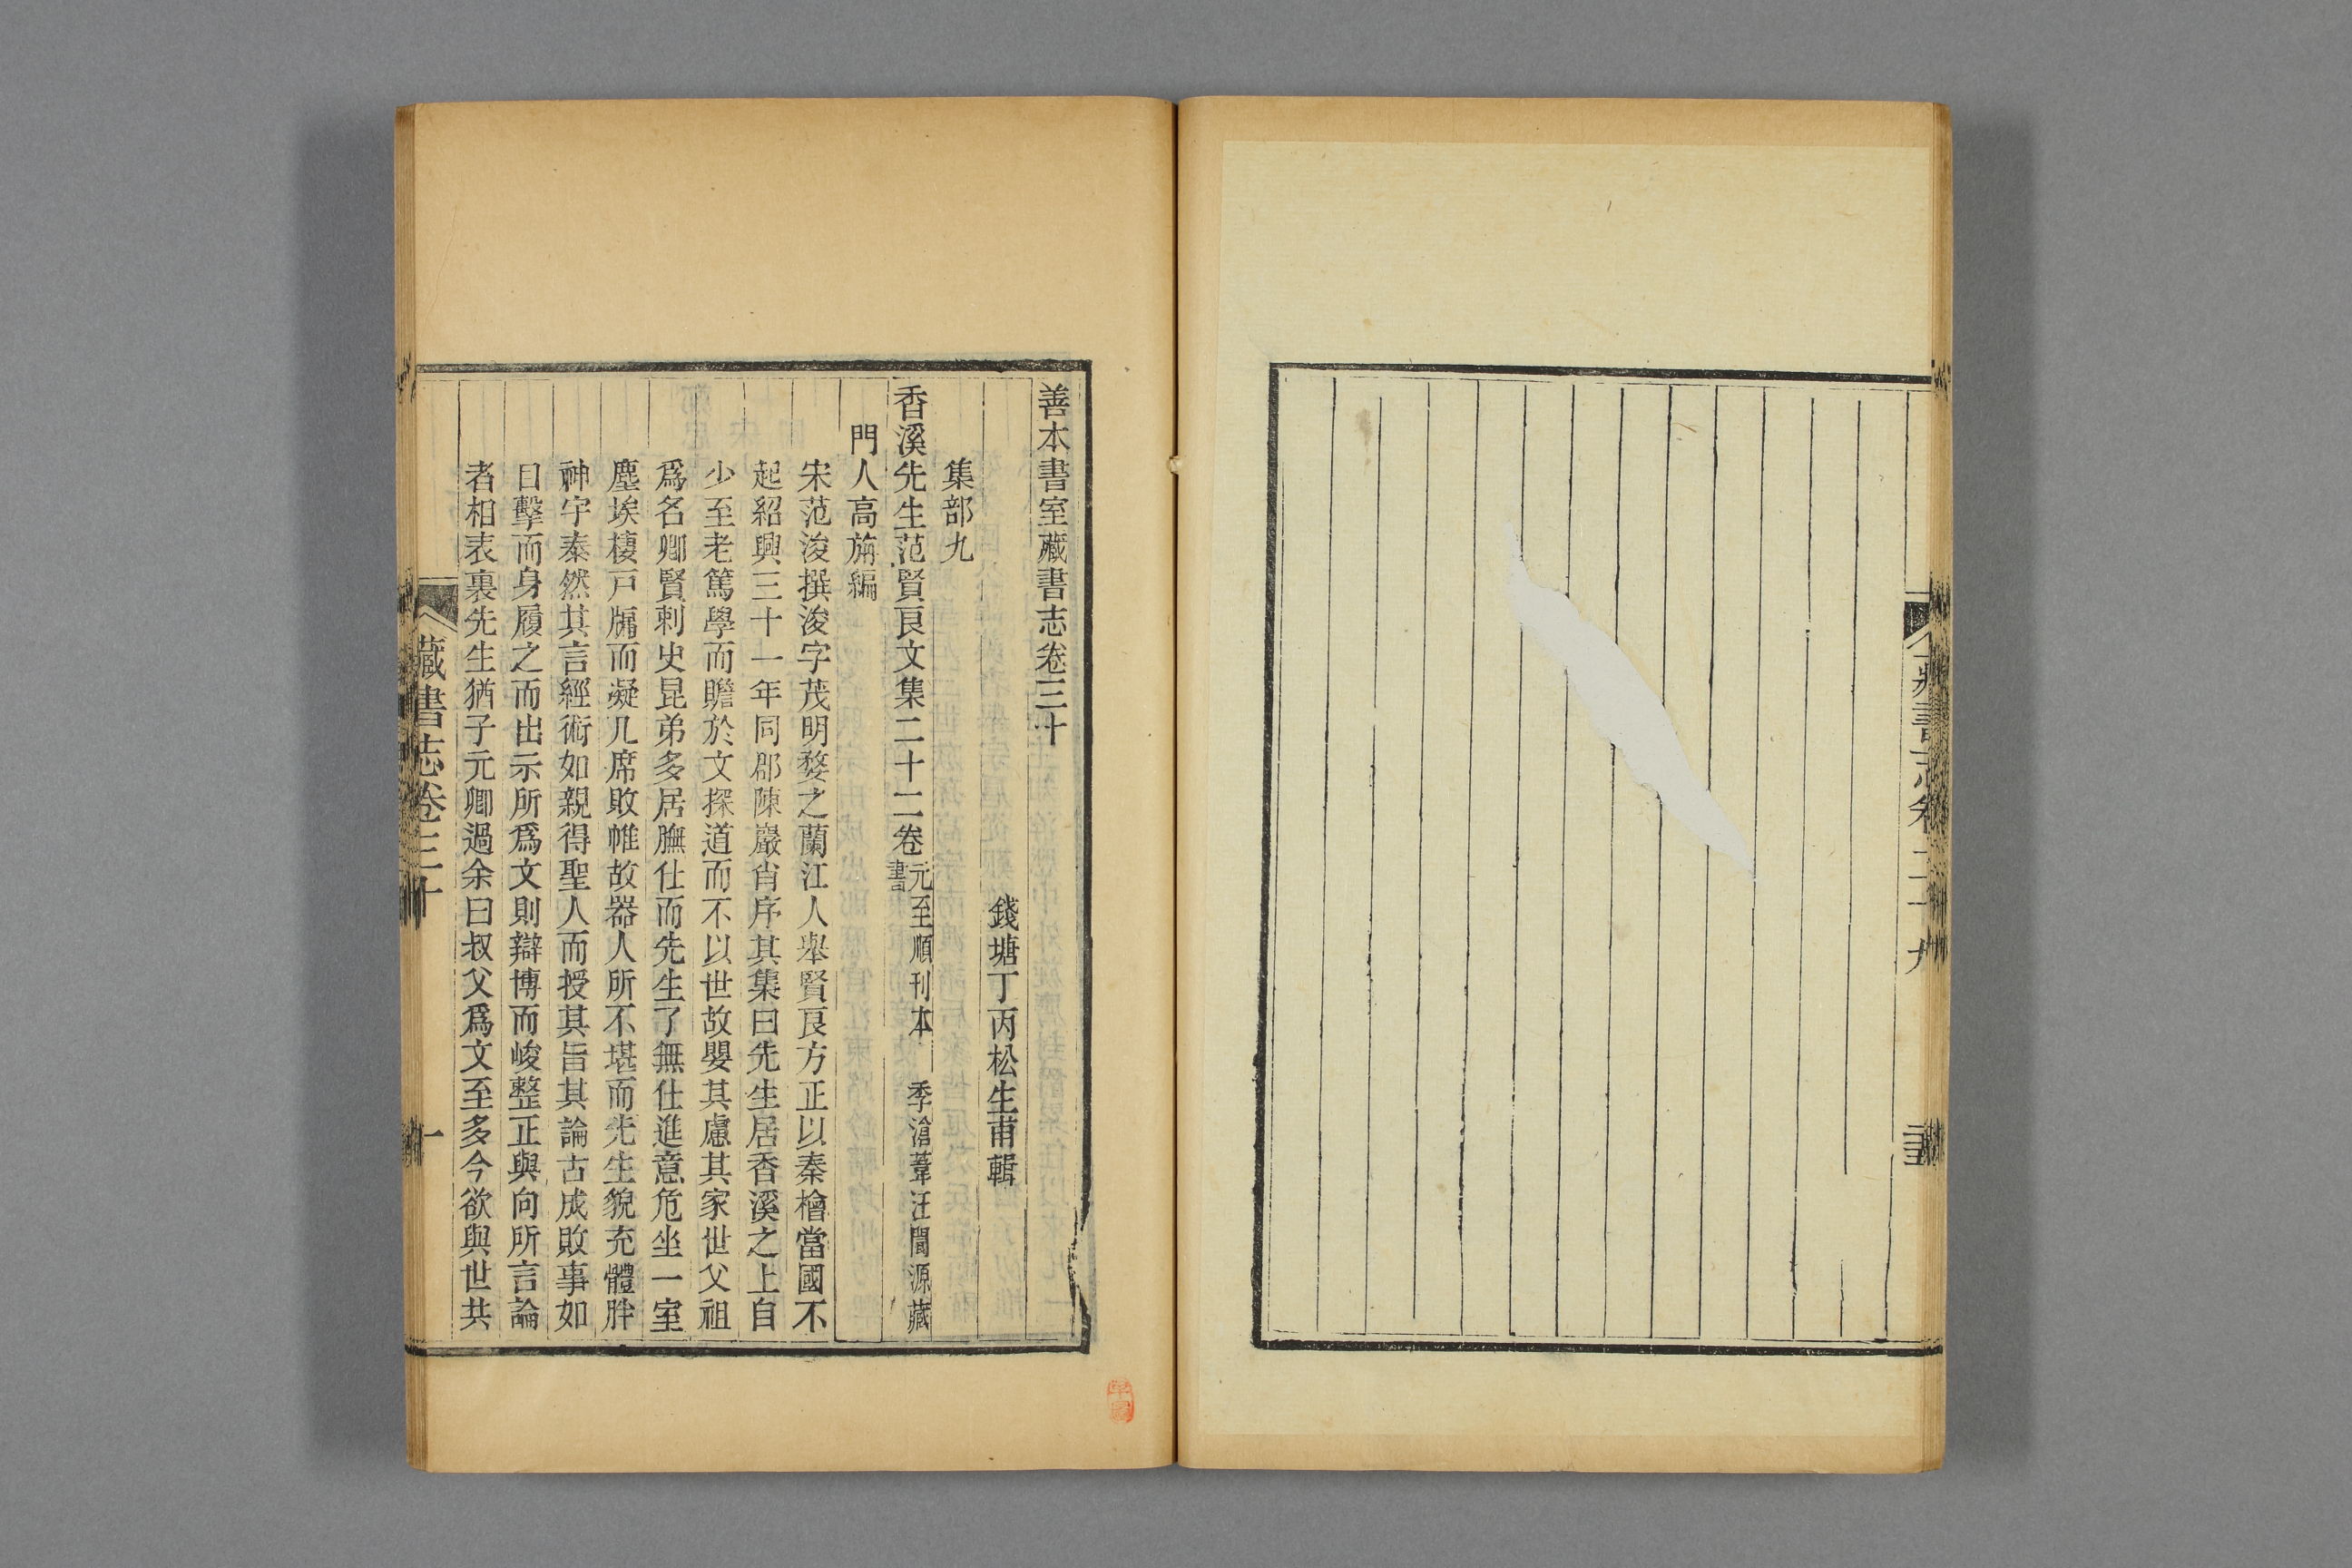 藏書志卷二十九
善本書室藏書志卷三十
錢塘丁丙松生甫輯
集部九
香溪先生范賢良文集二十二卷 元至順刊本 季滄葦汪閬源藏
書
門人高旃編
宋范浚撰浚字茂明婺之蘭江人舉賢良方正以秦檜當國不
起紹興三十一年同郡陳巖肖序其集曰先生居香溪之上自
少至老篤學而贍於文探道而不以世故嬰其慮其家世父祖
爲名卿賢刺史昆弟多居膴仕而先生了無仕進意危坐一室
塵埃棲戸牖而凝几席敗帷故器人所不堪而先生貌充體胖
神宇泰然其言經術如親得聖人而授其旨其論古成敗事如
目擊而身履之而出示所爲文則辯博而峻整正與向所言論
者相表裏先生猶子元卿過余曰叔父爲文至多今欲與世共
藏書志卷三十
一